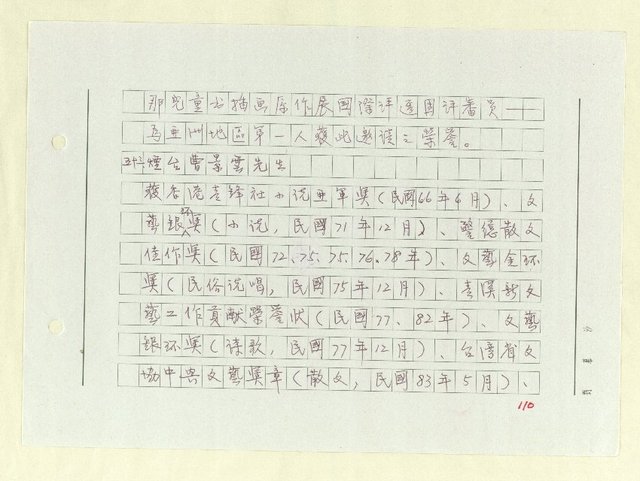 那兒童書插画原作展國際評選團評審員——
為亞洲地區第一人獲此邀請之榮譽。
五十二煙台曹景雲先生
獲香港青鋒社小說亞軍獎(民國66年4月)、文
藝銀環獎(小說,民國71年12月)、警德散文
佳作獎(民國72、75、75、76、78年)、文藝金环
獎(民俗说唱,民國75年12月)、青溪新文
藝工作貢献榮譽狀(民國77、82年)、文藝
銀环獎(诗歌,民國77年12月)、台湾省文
協中興文藝獎章(散文,民國83年5月)、
110